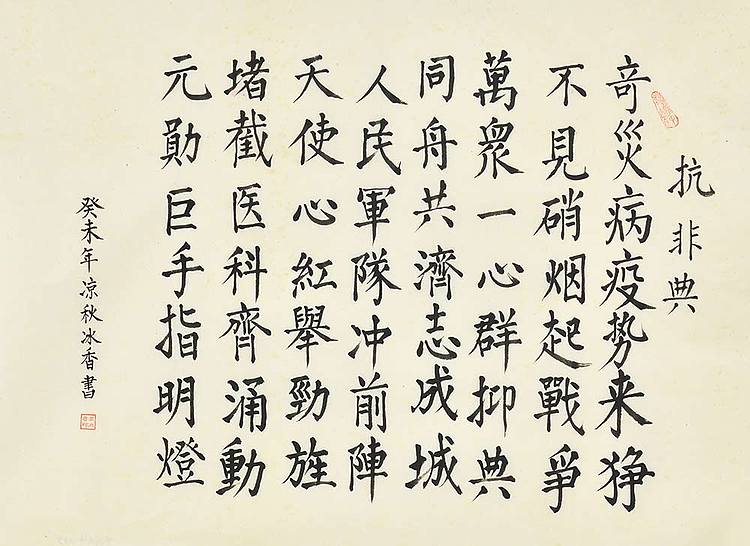 抗非典
竒災病疫势来狰
不見硝烟起戰爭
萬眾一心群抑典
同舟共濟志成城
人民軍隊冲前陣
天使心紅舉勁旌
堵截医科齊涌動
元勛巨手指明燈
癸未年凉秋冰香書